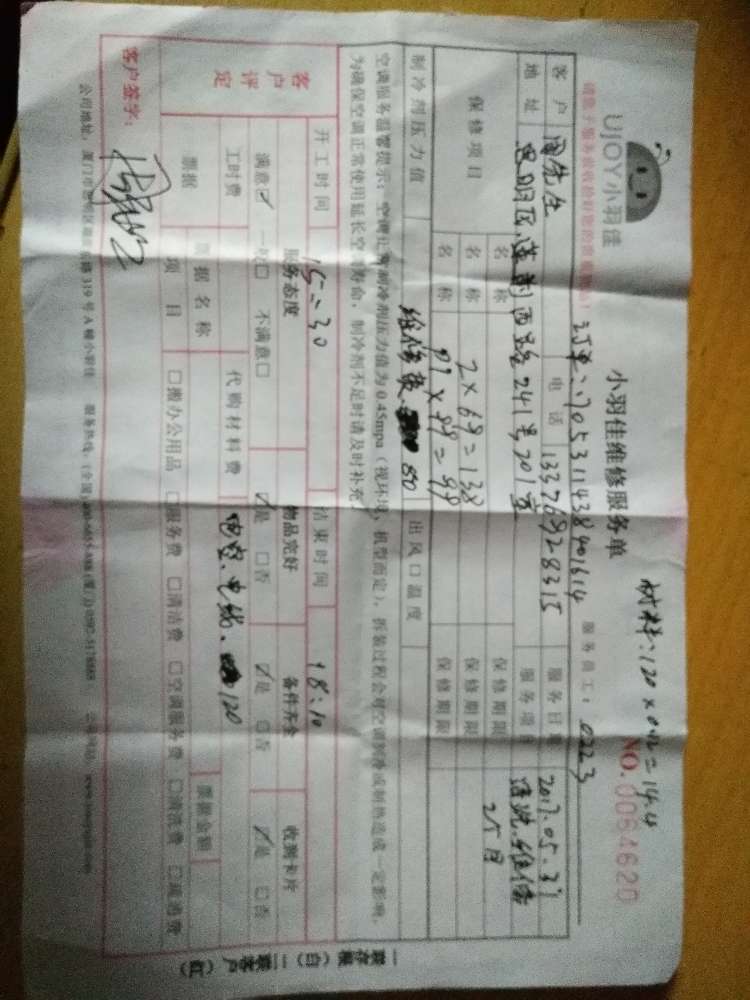 UJOY小羽佳
小羽佳维修服务单
材料:120×0.12=14.4
NO.0064620
服务员工:0223
客户 周先生 电话 13376928315 服务日期 2017.05.31
地址 思明区莲前西路241号701室 服务项目 清洗.维修
保修项目
名称 保修期限
名称 2×69=138 保修期限
名称 保修期限
制冷剂压力值 维修费 出风口温度
空调服务温馨提示:空调正常制冷剂压力值为0.45mpa(视环境、机型而定),拆装过程会对空调制冷或制热造成一定影响,
为确保空调正常使用延长空调寿命,制冷剂不足时请及时补充。
开工时间 15:30 结束时间 18:10
客户评定
服务态度 物品完好 备件齐全 收测卡片
满意☑ 一般□ 不满意□ ☑是 □否 ☑是 □否 ☑是 □否
工时费 代购材料费 电线. 120
票据 票据名称 票据金额
项目 □搬办公用品 □服务费 □清洁费 □空调服务费 □清洗费 □疏通费
客户签字:
公司地址:厦门市 319号A幢小羽佳 服务热线:
一联存根(白) 二联客户(红)